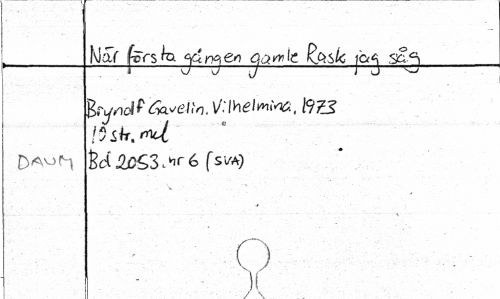 När första gången gamle Rask jag såg
Bryndlf Gavelin. Vilhelmina, 1973
19 str, mel
DAUM Bd 2053. nr 6 (SVA)